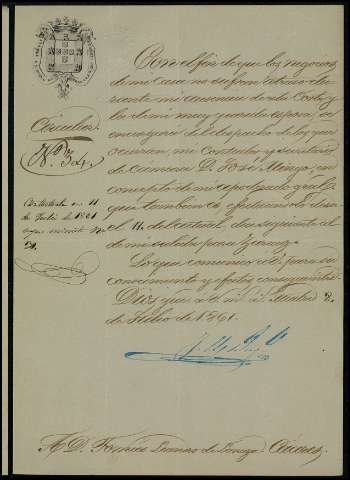 Circular
Nº 34.
Contestada en 11
de Julio de 1861
Con el fin de que los negocios
de mi casa no sufran atraso du-
rante mi ausencia de esta Corte y
la de mi muy querida esposa, se
encargará del despacho de los que
ocurran, mi Contador y Secretario
de Camara D. José Mingo, en
concepto de mi apoderado gral.
que tambien es, efectuandolo desde
el 11 del actual, dia siguiente al
de mi salida para
Lo que comunico a V. para su
conocimiento y efectos consiguientes.
Dios gue. a V. m. a. Madrid 2
de Julio de 1861.
A D. Tomás